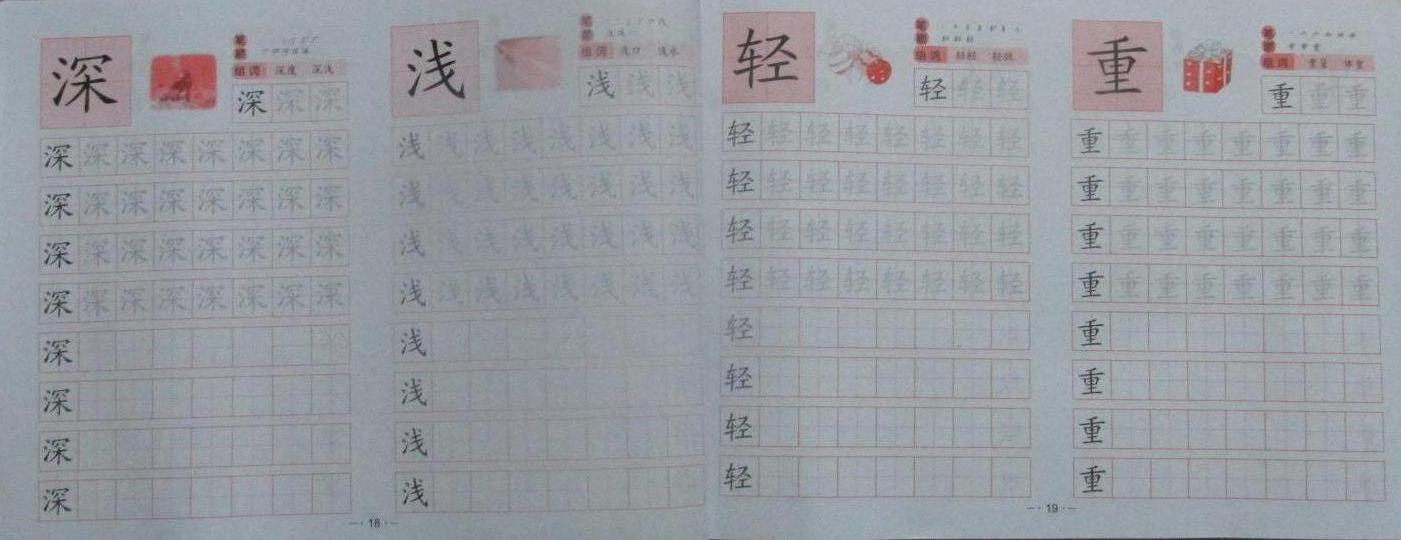 深
笔顺
组词 深度 深浅
深 深 深
深 深 深 深 深 深 深 深
深 深 深 深 深 深 深 深
深 深 深 深 深 深 深 深
深 深 深 深 深 深 深 深
深
深
深
深
浅
笔顺
组词 浅口 浅水
浅 浅 浅
浅 浅 浅 浅 浅 浅 浅 浅
浅 浅 浅 浅 浅 浅 浅 浅
浅 浅 浅 浅 浅 浅 浅 浅
浅 浅 浅 浅 浅 浅 浅 浅
浅
浅
浅
浅
18
轻
笔顺
组词
轻 轻 轻
轻 轻 轻 轻 轻 轻 轻 轻
轻 轻 轻 轻 轻 轻 轻 轻
轻 轻 轻 轻 轻 轻 轻 轻
轻 轻 轻 轻 轻 轻 轻 轻
轻
轻
轻
轻
重
笔顺
组词 重量 体重
重 重 重
重 重 重 重 重 重 重 重
重 重 重 重 重 重 重 重
重 重 重 重 重 重 重 重
重 重 重 重 重 重 重 重
重
重
重
重
19